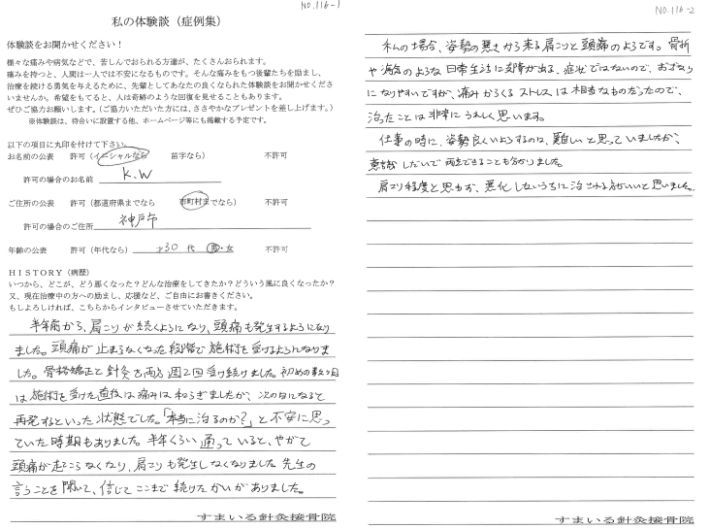 NO.116-1
私の体験談（症例集）
体験談をお聞かせください！
様々な痛みや病気などで、苦しんでおられる方達が、たくさんおられます。
痛みを持つと、人間は一人では不安になるものです。そんな痛みをもつ後輩たちを励まし、
治療を続ける勇気を与えるために、先輩としてあなたの良くなられた体験談をお聞かせくださ
いませんか。希望をもてると、人は奇跡のような回復を見せることもあります。
ぜひご協力お願いします。（ご協力いただいた方には、ささやかなプレゼントを差し上げます。）
※体験談は、待合いに設置する他、ホームページ等にも掲載する予定です。
以下の項目に丸印を付けて下さい。
お名前の公表　許可（イニシャルなら　苗字なら）　不許可
許可の場合のお名前　K.W
ご住所の公表　許可（都道府県までなら　市町村までなら）　不許可
許可の場合のご住所　神戸市
年齢の公表　許可（年代なら）　30代　男・女　不許可
HISTORY（病歴）
いつから、どこが、どう悪くなった？どんな治療をしてきたか？どういう風に良くなったか？
又、現在治療中の方への励まし、応援など、ご自由にお書きください。
もしよろしければ、こちらからインタビューさせていただきます。
半年前から、肩こりが続くようになり、頭痛も発生するようになり
ました。頭痛が止まらなくなった段階で施術を受けるようになりま
した。骨格矯正と針灸を両方週2回受け続けました。初めの数ヶ月
は施術を受けた直後は痛みは和らぎましたが、次の日になると
再発するといった状態でした。「本当に治るのか？」と不安に思っ
ていた時期もありました。半年くらい通っていると、やがて
頭痛が起こらなくなり、肩こりも発生しなくなりました。先生の
言うことを聞いて、信じてここまで続けたかいがありました。
すまいる針灸接骨院
NO.116-2
私の場合、姿勢の悪さから来る肩こりと頭痛のようです。骨折
や 病気のような日常生活に支障が出る、症状ではないので、おざなり
になりやすいですが、痛みからくるストレスは相当なものだったので、
治ったことは非常にうれしく思います。
仕事の時に、姿勢良くいようするのは、難しいと思っていましたが、
意識しだいで両立できることも分かりました。
肩こり程度と思わず、悪化しないうちに治される方がいいと思いました。
すまいる針灸接骨院